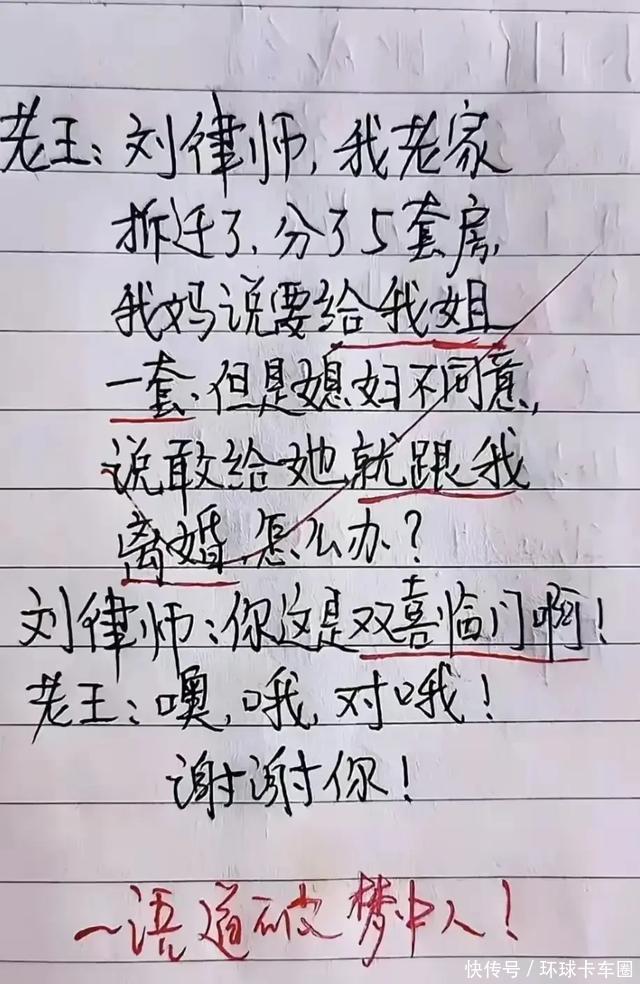 老王：刘律师，我老家
拆迁了，分了5套房，
我妈说要给我姐
一套，但是媳妇不同意，
说敢给她就跟我
离婚，怎么办？
刘律师：你这是双喜临门啊！
老王：噢，哦，对哦！
谢谢你！
一语道破梦中人！
快传号／环球卡车圈